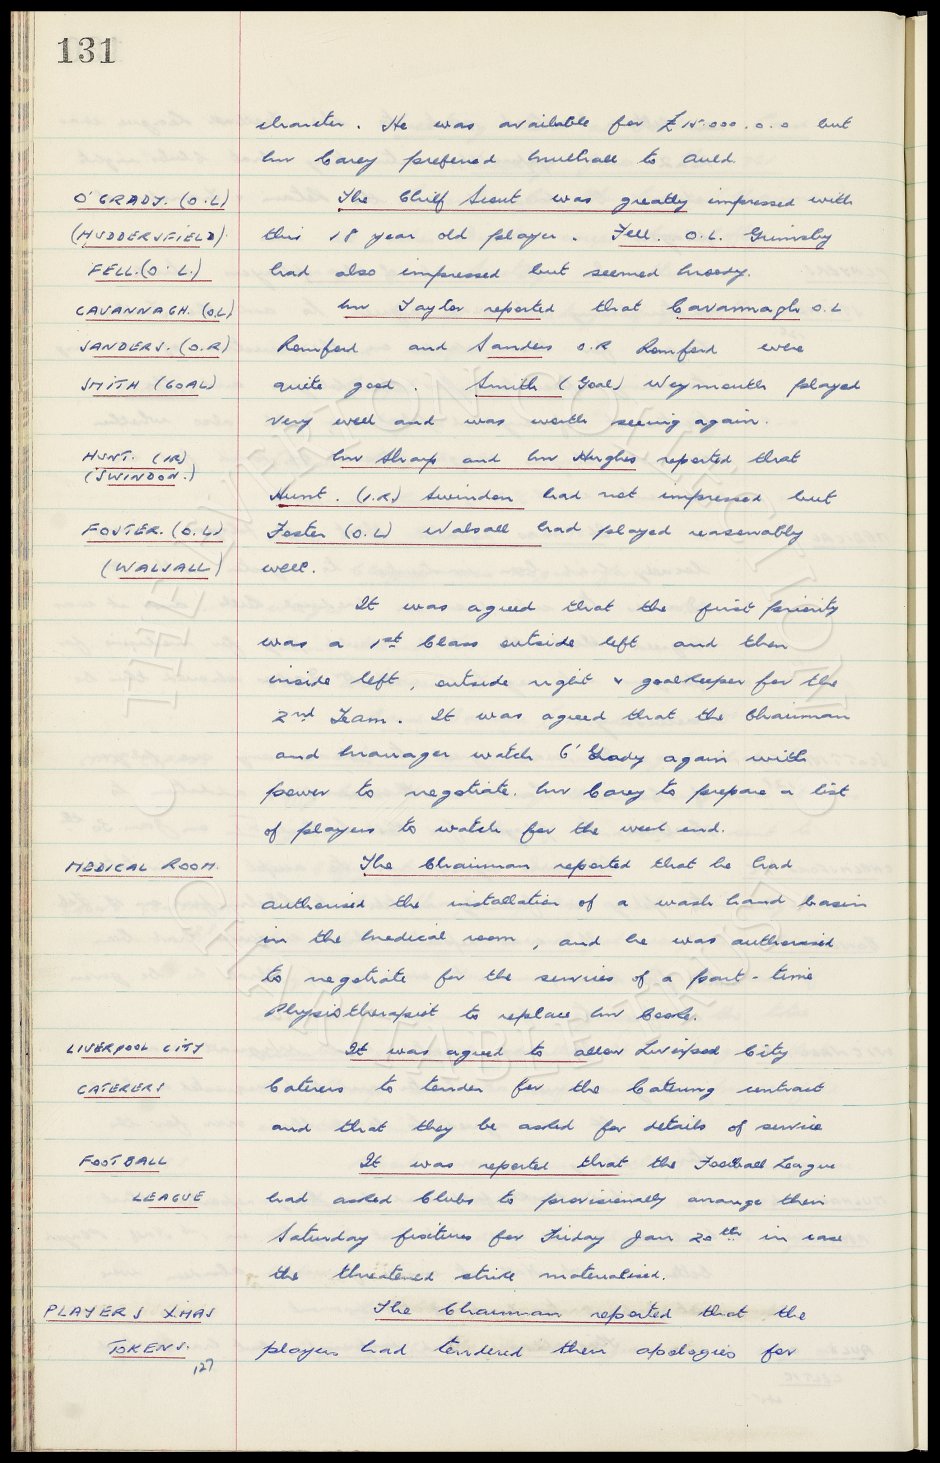 131
character. He was available for £15.000.0.0 but
Mr Carey preferred Mulhall to Auld.
O'GRADY. (O.L) The Chief Scout was greatly impressed with
(HUDDERSFIELD) this 18 year old player. Fell. O.L. Grimsby
FELL. (O.L.) had also impressed but seemed moody.
CAVANNAGH. (O.L) Mr Taylor reported that Cavannagh O.L
SANDERS. (O.R) Romford and Sanders O.R Romford were
SMITH (GOAL) quite good. Smith (Goal) Weymouth played
very well and was worth seeing again.
HUNT. (IR) Mr Sharp and Mr Hughes reported that
(SWINDON.)
Hunt. (I.R.) Swindon had not impressed but
FOSTER. (O.L) Foster (O.L) Walsall had played reasonably
(WALSALL) well.
It was agreed that the first priority
was a 1st Class outside left and then
inside left, outside right & goalkeeper for the
2nd Team. It was agreed that the Chairman
and Manager watch O'Grady again with
power to negotiate. Mr Carey to prepare a list
of players to watch for the week end.
MEDICAL ROOM. The Chairman reported that he had
authorised the installation of a wash hand basin
in the medical room, and he was authorised
to negotiate for the services of a part-time
Physiotherapist to replace Mr Cooke.
LIVERPOOL CITY It was agreed to allow Liverpool City
CATERERS Caterers to tender for the Catering contract
and that they be asked for details of service
FOOTBALL It was reported that the Football League
LEAGUE had asked Clubs to provisionally arrange their
Saturday fixtures for Friday Jan 20th in case
the threatened strike materialised.
PLAYERS XMAS The Chairman reported that the
TOKENS. players had tendered their apologies for
127